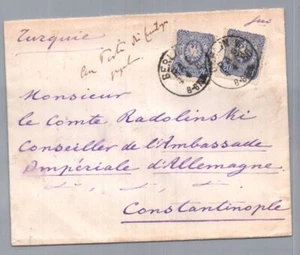 Turquie
BERLIN
Monsieur
le Comte Radolinski
Conseiller de l'Ambassade
Impériale d'Allemagne
Constantinople